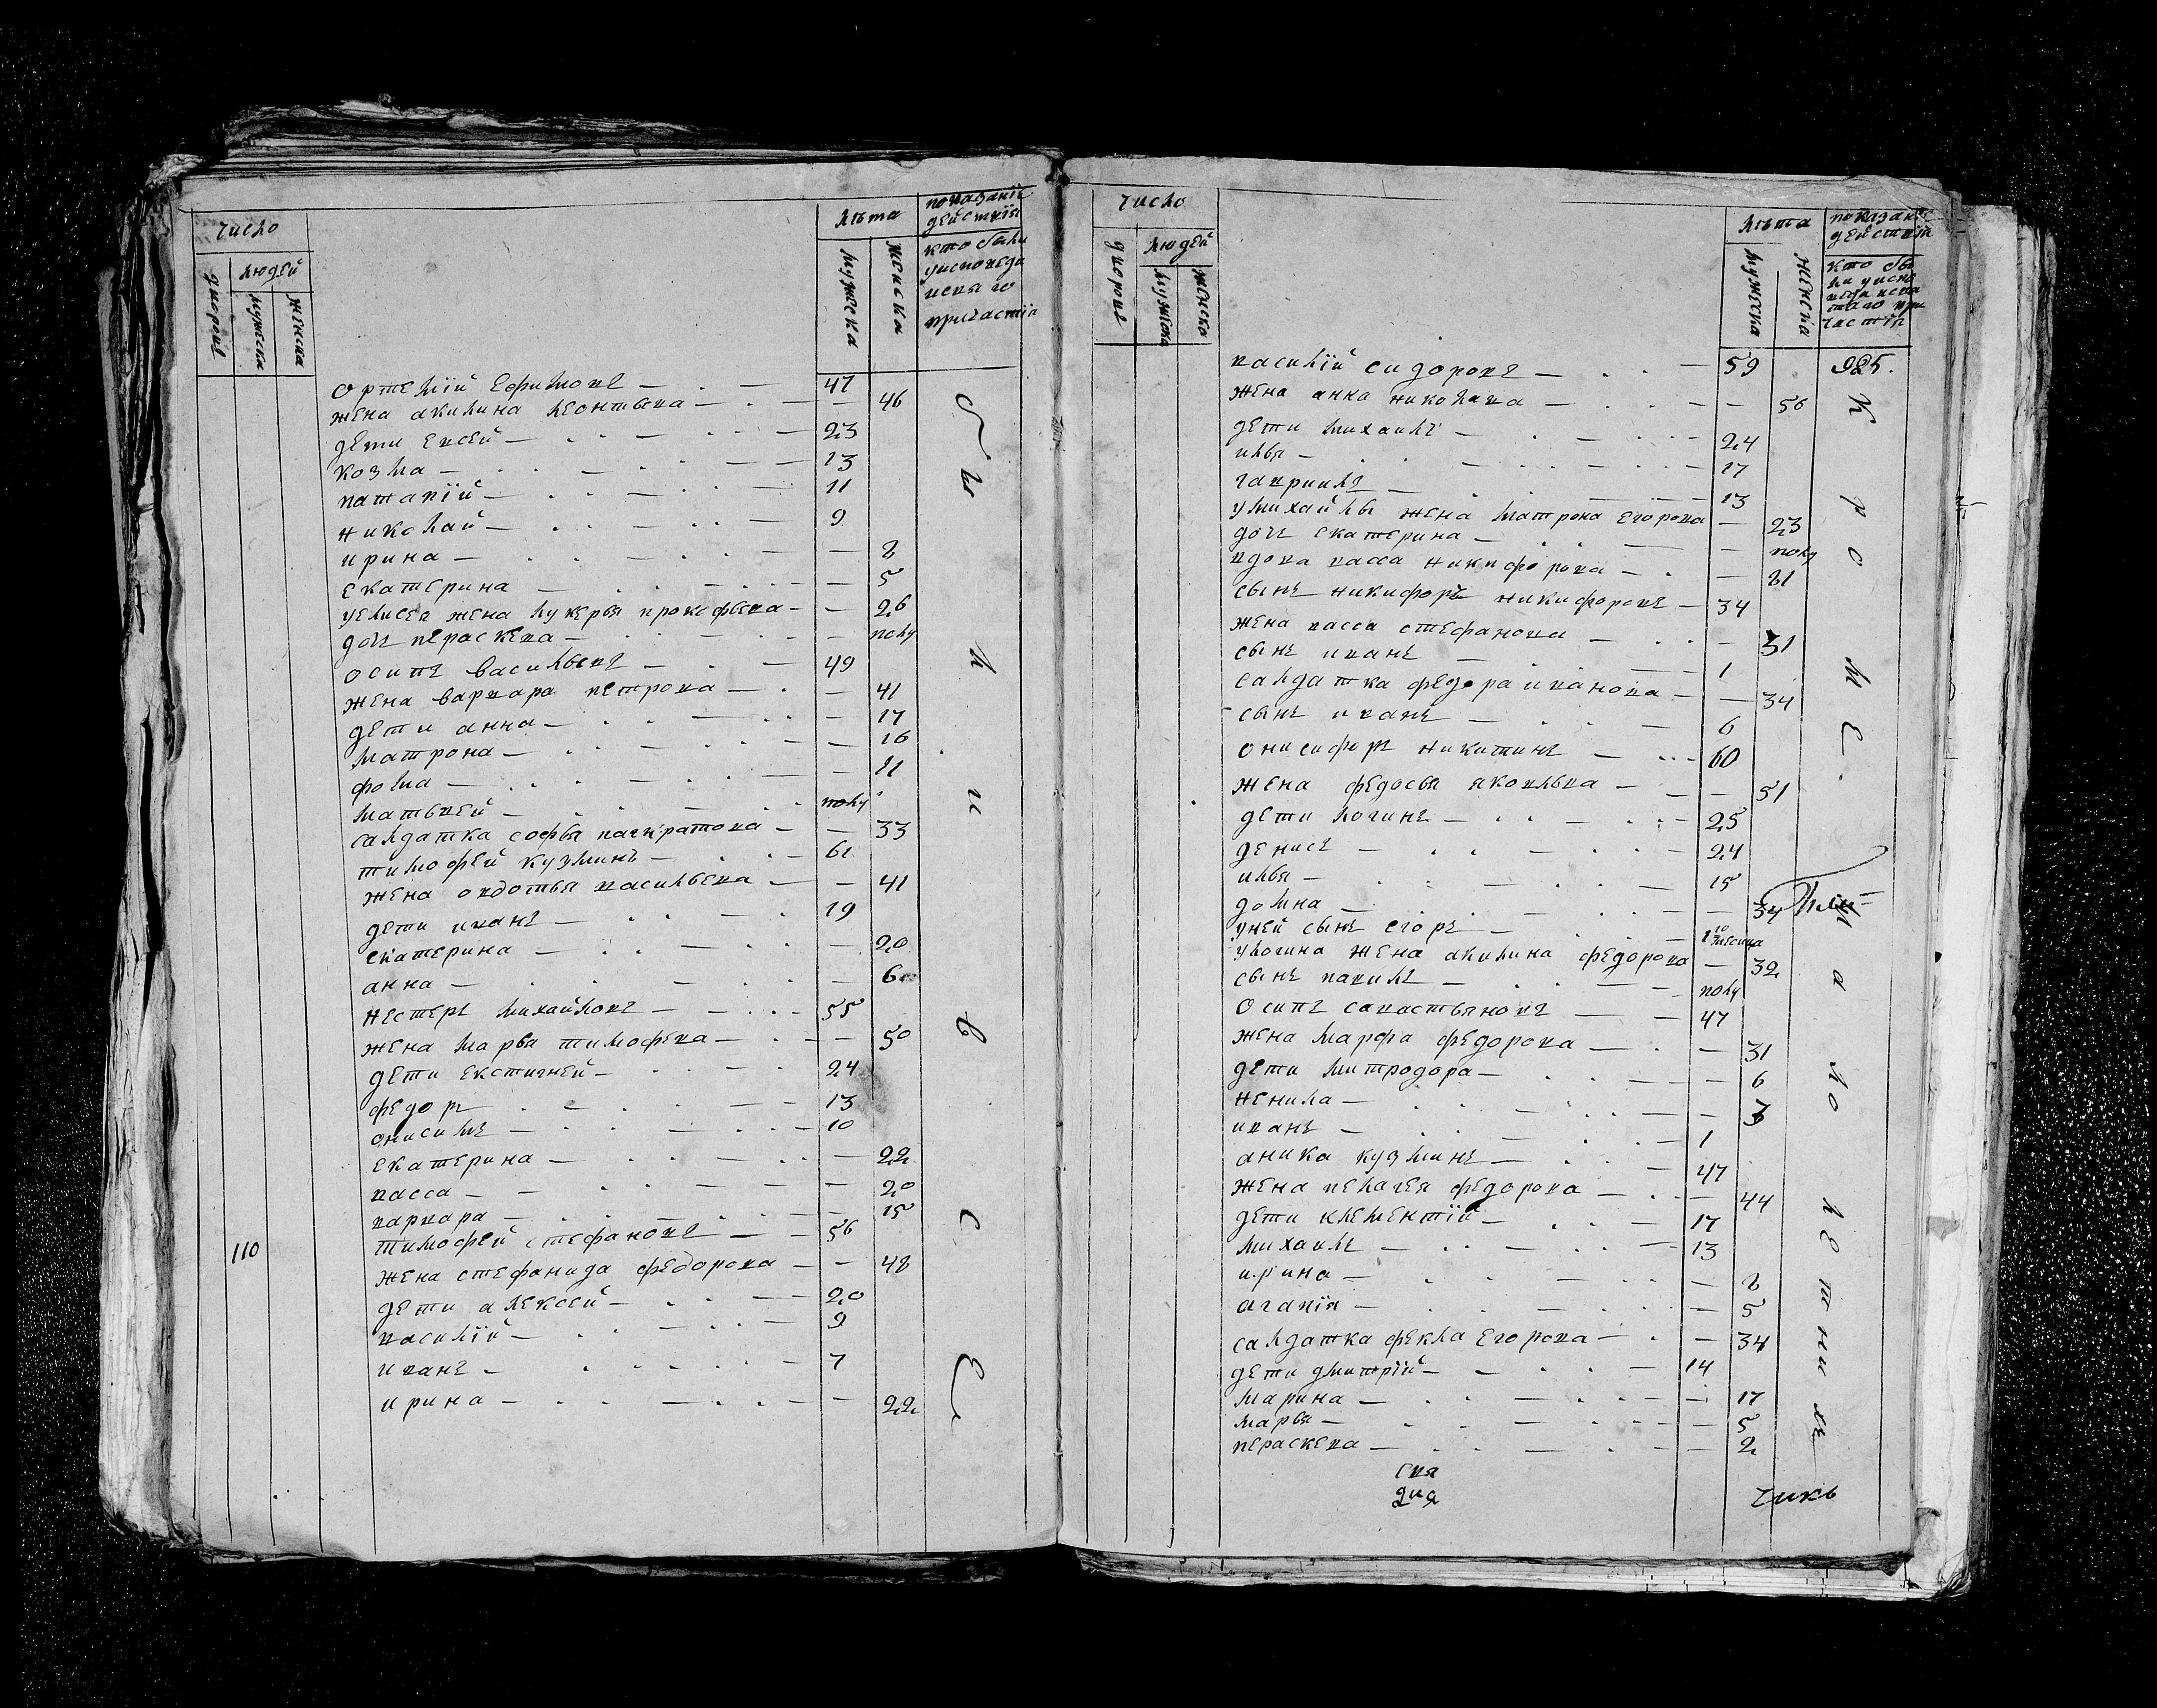 число
людей
дворовъ
мужска
женска
лѣта
мужеска
женска
показанiе
действiя
кто были
уисповеди
исвяго
причастiя
ортемiй ефимовъ 47
жена акилина леонтьева 46
дети евсей 23
козма 13
патапiй 11
николай 9
ирина 8
екатерина 5
уелисея жена лукерья прокофьева 26
дочь пераскева полу
осипъ васильевъ 49
жена варвара петрова 41
дети анна 17
матрона 16
фома 11
матьвей полу
салдатка софья панкратова 33
тимофей кузминъ 61
жена овдотья васильева 41
дети иванъ 19
екатерина 20
анна 6
нестеръ михайловъ 55
жена марья тимофева 50
дети евстигней 24
федоръ 13
онисимъ 10
екатерина 22
васса 20
варвара 15
110 тимофей стефановъ 56
жена стефанида федорова 48
дети алексей 20
василiй 9
иванъ 7
ирина 22
были все
число
людей
дворовъ
мужска
женско
лѣта
мужеска
женска
показанiе
действiя
кто бы
ли уиспо
веди исвя
таго при
частiя
василiй сидоровъ 59 985.
жена анна николава 56
дети михаилъ 24
илья 17
гаврiилъ 13
умихайлы жена матрона егорова 23
дочь екатерина полу
вдова васса никифорова 81
сынъ никифоръ никифоровъ 34
жена васса стефанова 31
сынъ иванъ 1
салдатка федора иванова 34
сынъ иванъ 6
онисифоръ никитинъ 60
жена федосья яковльва 51
дети логинъ 25
денисъ 24
илья 15
домна 34
уней сынъ егоръ 10 месица
улогина жена акилина федорова 32
сынъ павилъ полу
осипъ савастьяновъ 47
жена марфа федорова 31
дети митродора 6
ненила 3
иванъ 1
аника кузминъ 47
жена пелагея федорова 44
дети клементiй 17
михаилъ 13
ирина 8
агапiя 5
салдатка фекла егорова 34
дети дмитрiй 14
марина 17
марья 5
пераскева 2
кроме. малолетнихъ
свя
чикъ